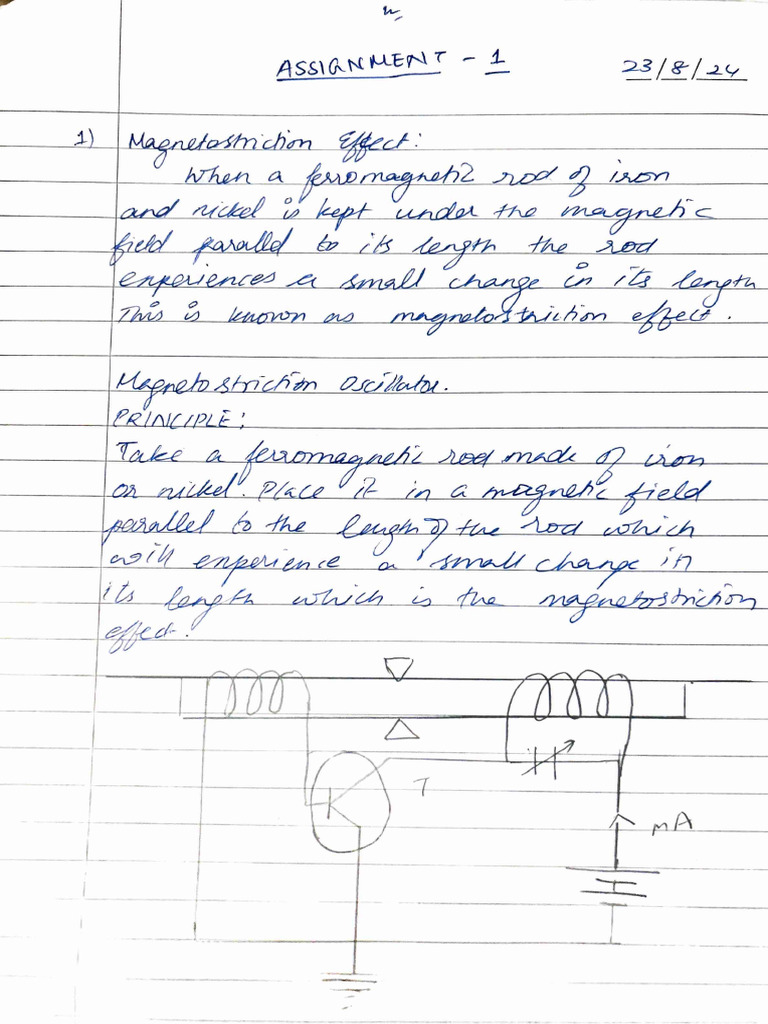 ASSIGNMENT - 1
23/8/24
1) Magnetostriction Effect:
When a ferromagnetic rod of iron
and nickel is kept under the magnetic
field parallel to its length the rod
experiences a small change in its length
This is known as magnetostriction effect.
Magnetostriction Oscillator.
PRINCIPLE:
Take a ferromagnetic rod made of iron
or nickel. Place it in a magnetic field
parallel to the length of the rod which
will experience a small change in
its length which is the magnetostriction
effect.
T
mA